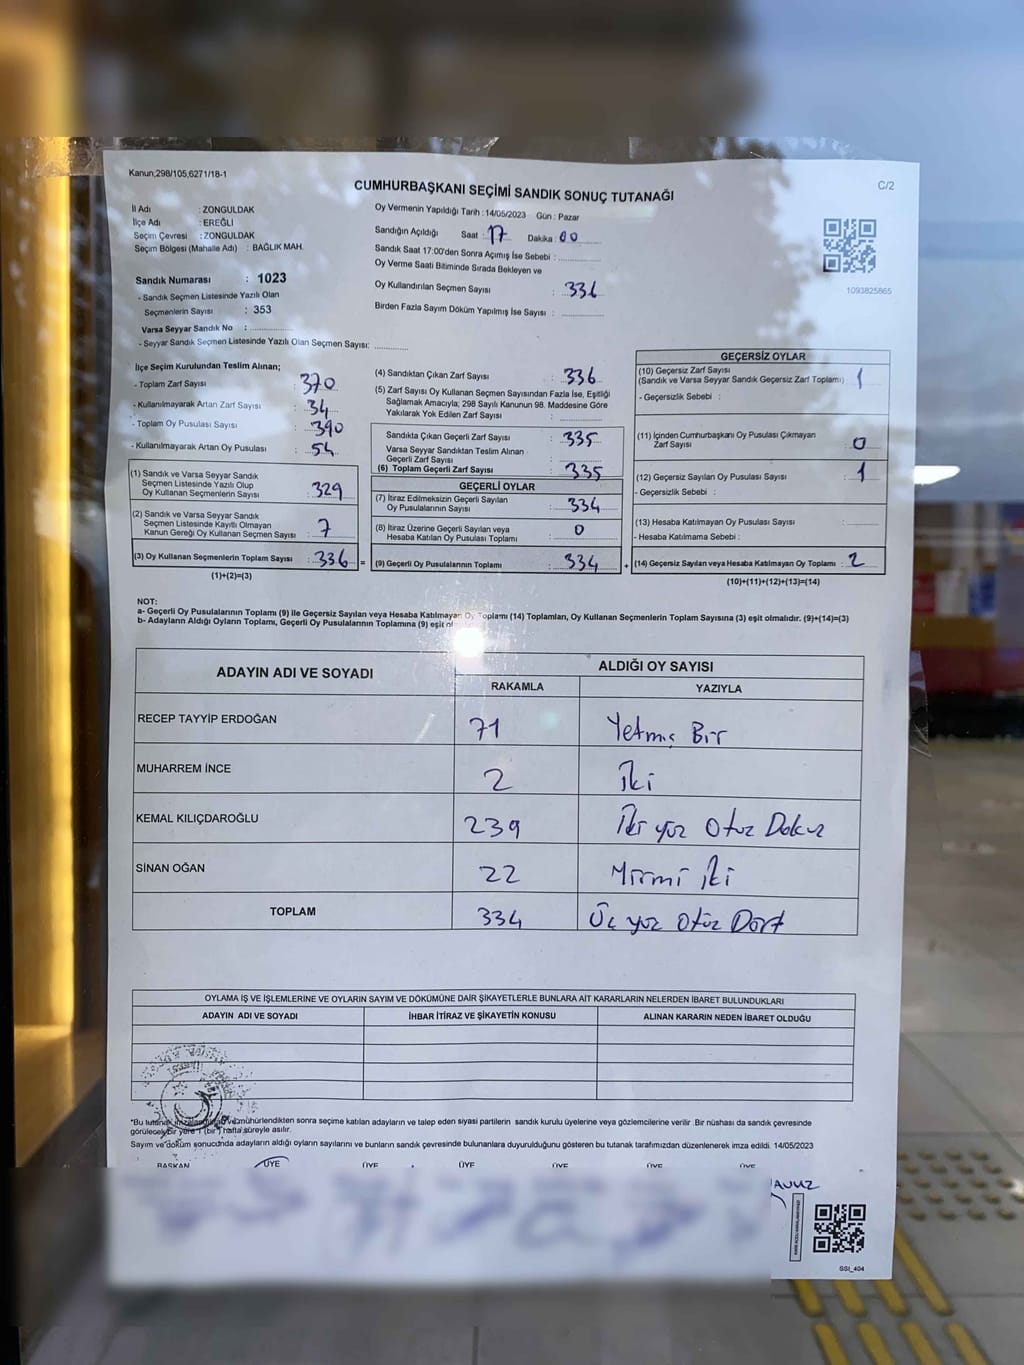 Kanun,298/105,6271/18-1
C/2
CUMHURBAŞKANI SEÇİMİ SANDIK SONUÇ TUTANAĞI
İl Adı : ZONGULDAK
İlçe Adı : EREĞLİ
Seçim Çevresi : ZONGULDAK
Seçim Bölgesi (Mahalle Adı) : BAĞLIK MAH.
Sandık Numarası : 1023
- Sandık Seçmen Listesinde Yazılı Olan
Seçmenlerin Sayısı : 353
Varsa Seyyar Sandık No :
- Seyyar Sandık Seçmen Listesinde Yazılı Olan Seçmen Sayısı:
Oy Vermenin Yapıldığı Tarih : 14/05/2023 Gün : Pazar
Sandığın Açıldığı Saat : 17 Dakika : 00
Sandık Saat 17:00'den Sonra Açımış İse Sebebi :
Oy Verme Saati Bitiminde Sırada Bekleyen ve
Oy Kullandırılan Seçmen Sayısı : 336
Birden Fazla Sayım Döküm Yapılmış İse Sayısı :
1093825865
İlçe Seçim Kurulundan Teslim Alınan;
- Toplam Zarf Sayısı : 370
- Kullanılmayarak Artan Zarf Sayısı : 34
- Toplam Oy Pusulası Sayısı : 390
- Kullanılmayarak Artan Oy Pusulası : 54
(1) Sandık ve Varsa Seyyar Sandık
Seçmen Listesinde Yazılı Olup
Oy Kullanan Seçmenlerin Sayısı : 329
(2) Sandık ve Varsa Seyyar Sandık
Seçmen Listesinde Kayıtlı Olmayan
Kanun Gereği Oy Kullanan Seçmen Sayısı : 7
(3) Oy Kullanan Seçmenlerin Toplam Sayısı : 336 =
(1)+(2)=(3)
(4) Sandıktan Çıkan Zarf Sayısı : 336
(5) Zarf Sayısı Oy Kullanan Seçmen Sayısından Fazla İse, Eşitliği
Sağlamak Amacıyla; 298 Sayılı Kanunun 98. Maddesine Göre
Yakılarak Yok Edilen Zarf Sayısı :
Sandıkta Çıkan Geçerli Zarf Sayısı : 335
Varsa Seyyar Sandıktan Teslim Alınan
Geçerli Zarf Sayısı :
(6) Toplam Geçerli Zarf Sayısı : 335
GEÇERLİ OYLAR
(7) İtiraz Edilmeksizin Geçerli Sayılan
Oy Pusulalarının Sayısı : 334
(8) İtiraz Üzerine Geçerli Sayılan veya
Hesaba Katılan Oy Pusulası Toplamı : 0
(9) Geçerli Oy Pusulalarının Toplamı : 334 +
GEÇERSİZ OYLAR
(10) Geçersiz Zarf Sayısı
(Sandık ve Varsa Seyyar Sandık Geçersiz Zarf Toplamı) : 1
- Geçersizlik Sebebi :
(11) İçinden Cumhurbaşkanı Oy Pusulası Çıkmayan
Zarf Sayısı : 0
(12) Geçersiz Sayılan Oy Pusulası Sayısı : 1
- Geçersizlik Sebebi :
(13) Hesaba Katılmayan Oy Pusulası Sayısı :
- Hesaba Katılmama Sebebi :
(14) Geçersiz Sayılan veya Hesaba Katılmayan Oy Toplamı : 2
(10)+(11)+(12)+(13)=(14)
NOT:
a- Geçerli Oy Pusulalarının Toplamı (9) ile Geçersiz Sayılan veya Hesaba Katılmayan Oy Toplamı (14) Toplamları, Oy Kullanan Seçmenlerin Toplam Sayısına (3) eşit olmalıdır. (9)+(14)=(3)
b- Adayların Aldığı Oyların Toplamı, Geçerli Oy Pusulalarının Toplamına (9) eşit
ADAYIN ADI VE SOYADI ALDIĞI OY SAYISI
RAKAMLA YAZIYLA
RECEP TAYYİP ERDOĞAN 71 Yetmiş Bir
MUHARREM İNCE 2 İki
KEMAL KILIÇDAROĞLU 239 İki yüz Otuz Dokuz
SİNAN OĞAN 22 Yirmi İki
TOPLAM 334 Üç yüz Otuz Dört
OYLAMA İŞ VE İŞLEMLERİNE VE OYLARIN SAYIM VE DÖKÜMÜNE DAİR ŞİKAYETLERLE BUNLARA AİT KARARLARIN NELERDEN İBARET BULUNDUKLARI
ADAYIN ADI VE SOYADI İHBAR İTİRAZ VE ŞİKAYETİN KONUSU ALINAN KARARIN NEDEN İBARET OLDUĞU
*Bu ve mühürlendikten sonra seçime katılan adayların ve talep eden siyasi partilerin sandık kurulu üyelerine veya gözlemcilerine verilir .Bir nüshası da sandık çevresinde
görülecek bir yere 1 (bir) hafta süreyle asılır.
Sayım ve döküm sonucunda adayların aldığı oyların sayılarını ve bunların sandık çevresinde bulunanlara duyurulduğunu gösteren bu tutanak tarafımızdan düzenlenerek imza edildi. 14/05/2023
BAŞKAN ÜYE ÜYE ÜYE ÜYE ÜYE ÜYE
SSI_404